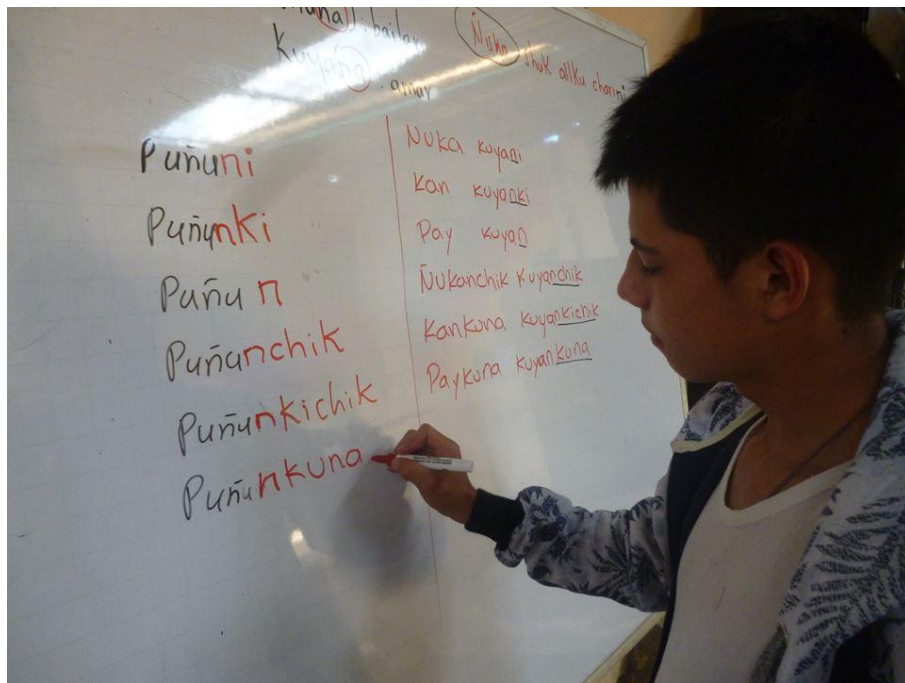 : bailar
Kuyana : amar
shuk allku charini
Puñuni
Puñunki
Puñun
Puñunchik
Puñunkichik
Puñunkuna
Ñuka kuyani
Kan kuyanki
Pay kuyan
Ñukanchik kuyanchik
Kankuna kuyankichik
Paykuna kuyankuna